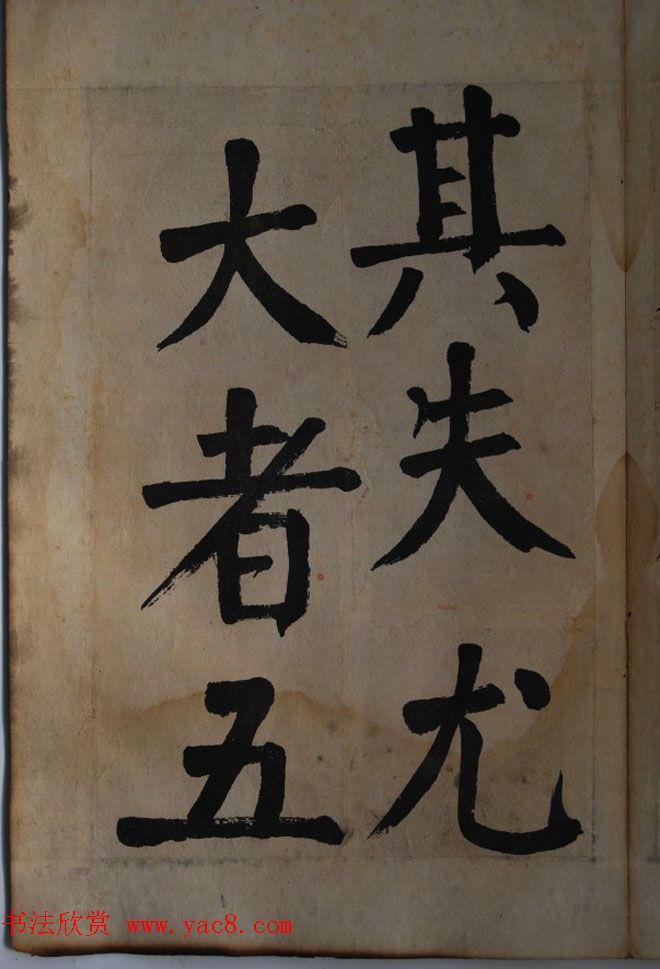 其失尤
大者五
书法欣赏 www.yac8.com